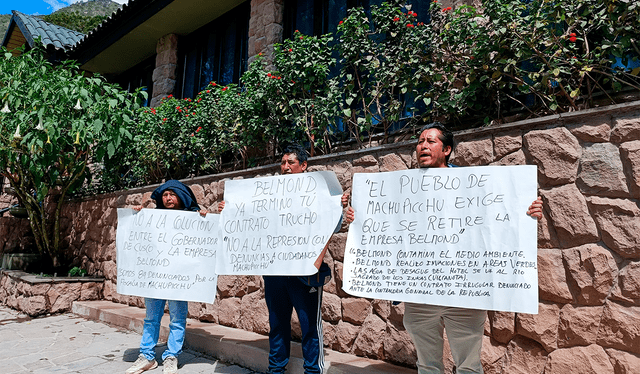 NO A LA COLUCION
ENTRE EL GOBERNADOR
DE CUSCO Y LA EMPRESA
BELMOND
SOMOS 64 DENUNCIADOS POR LA
FISCALÍA DE MACHUPICCHU
BELMOND
YA TERMINO TÚ
CONTRATO TRUCHO
"NO A LA REPRESION CON
DENUNCIAS A CIUDADANOS
MACHUPICCHU
"EL PUEBLO DE
MACHUPICCHU EXIGE
QUE SE RETIRE LA
EMPRESA BELMOND"
- BELMOND CONTAMINA EL MEDIO AMBIENTE.
- BELMOND REALIZO INVACIONES EN AREAS VERDES
- LAS AGUA DE DESAGUE DEL HOTEL SE VA AL RIO
SAGRADO DE LOS INKAS (VILCANOTA).
- BELMOND TIENE UN CONTRATO IRREGULAR DENUNCIADO
ANTE LA CONTRALORIA GENERAL DE LA REPUBLICA